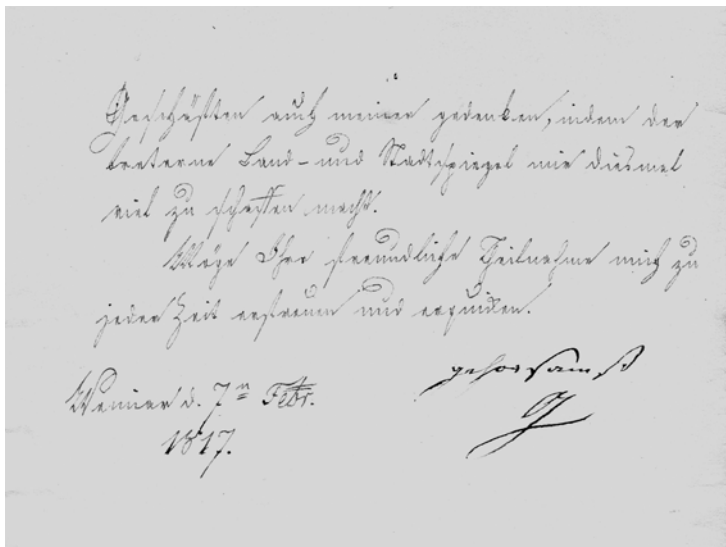 Geschäften auch meiner gedenken, indem der
breterne Land- und Stadtspiegel mir diesmal
viel zu schaffen macht.
Möge Ihre freundliche Theilnahme mich zu
jeder Zeit erfreuen und erquicken.
gehorsamst
Weimar d. 7n Febr. G
1817.